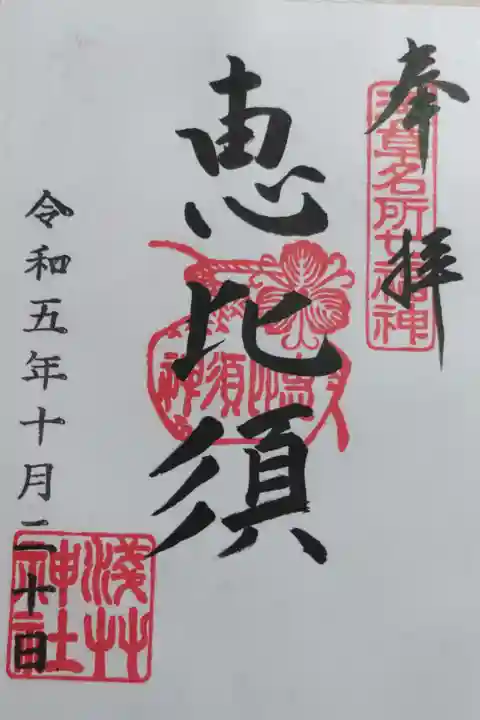 奉拝
浅草名所七福神
恵比須
恵比須神
令和五年十月二十日
淺草神社